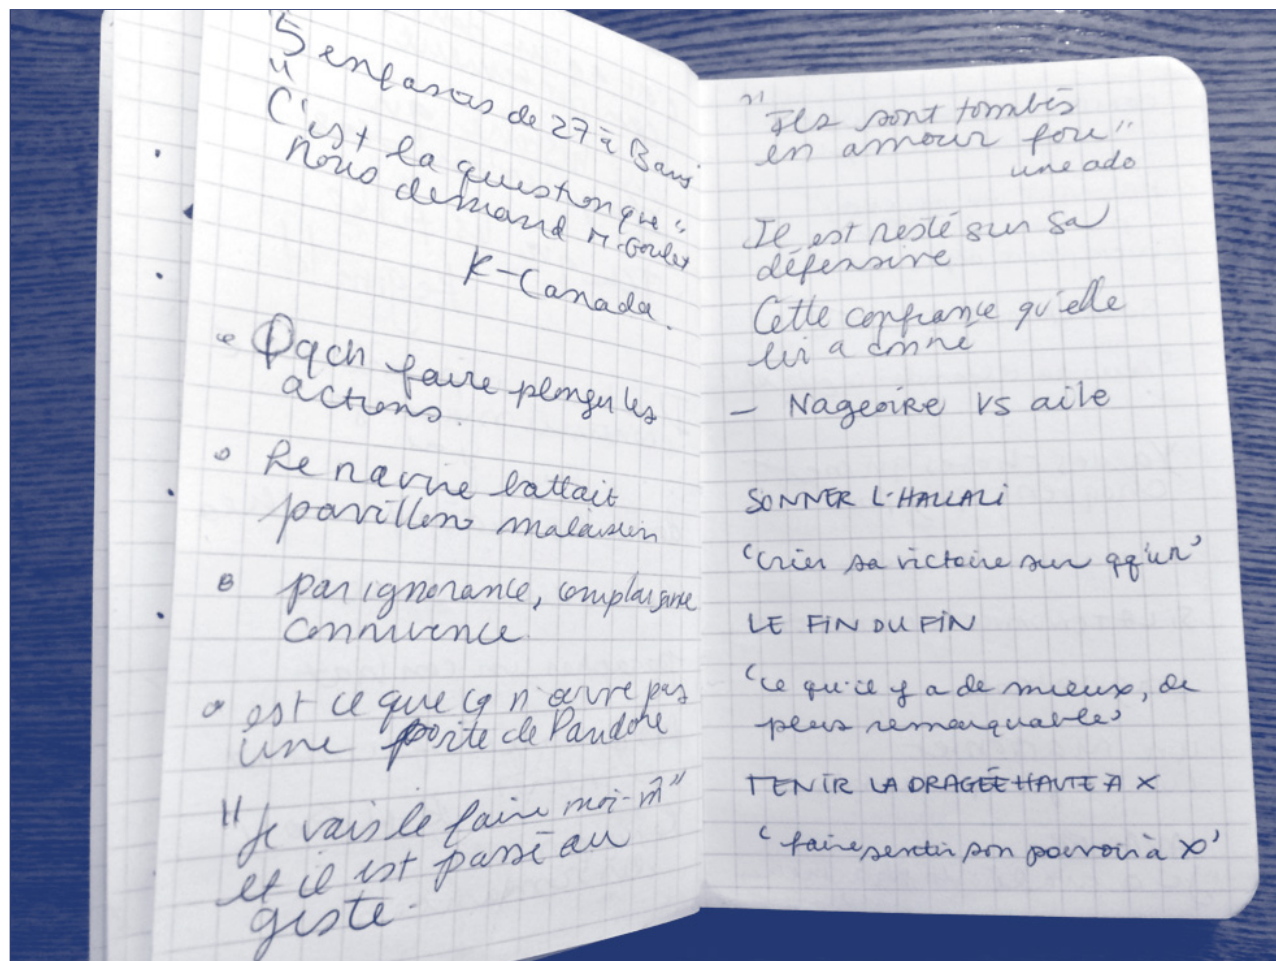 "5 enfants de 27 à
"C'est la question que"
nous demand M. Goulet
R-Canada.
faire plonger les
actions.
Le navire battait
pavillon malaisien
par ignorance, complaisance
connivence
est ce que ça n'ouvre pas
une porte de Pandore
"Je vais le faire moi-m̂"
et il est passé au
geste.
"Ils sont tombés
en amour fou"
une ado
Il est resté sur sa
défensive
Cette confiance qu'elle
lui a donné
- Nageoire vs aile
SONNER L'HALLALI
'crier sa victoire sur qq'un'
LE FIN DU FIN
'ce qu'il y a de mieux, de
plus remarquable'
TENIR LA DRAGÉE HAUTE À X
'faire sentir son pouvoir à X'